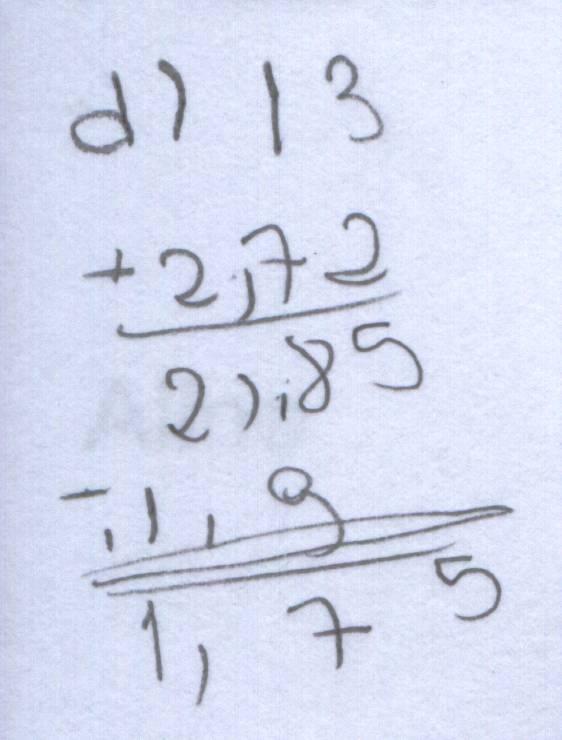 d) 13
+2,72
2,85
-1,9
1,75